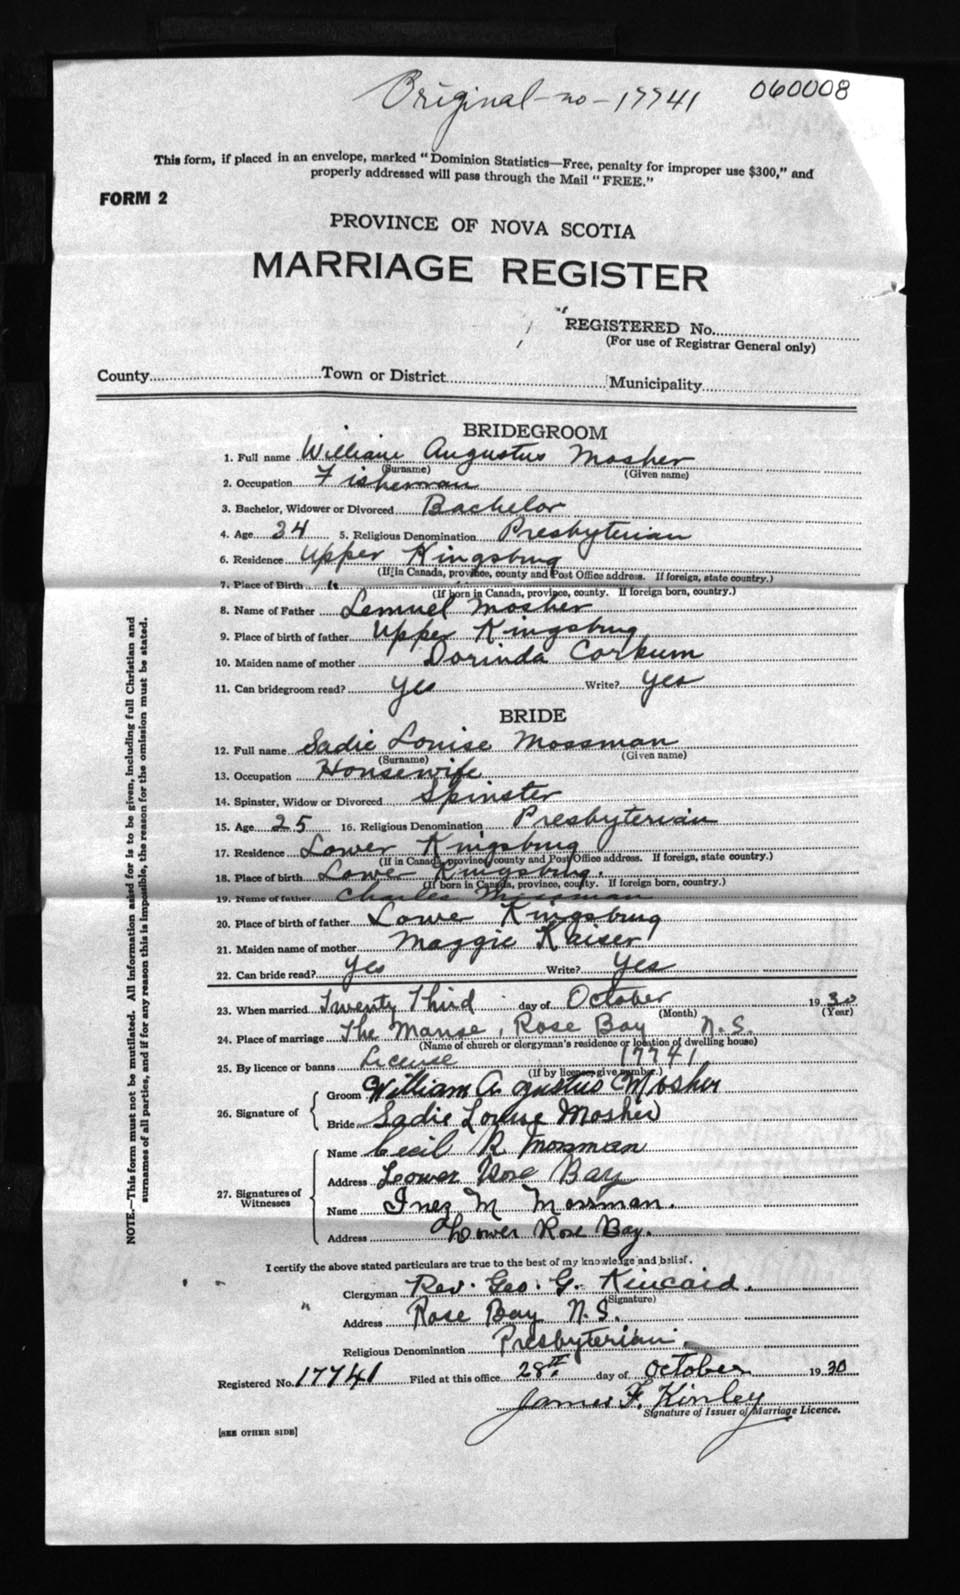 Original - no - 17741 060008
This form, if placed in an envelope, marked "Dominion Statistics—Free, penalty for improper use $300," and
properly addressed will pass through the Mail "FREE."
FORM 2
PROVINCE OF NOVA SCOTIA
MARRIAGE REGISTER
REGISTERED No.
(For use of Registrar General only)
County Town or District Municipality
BRIDEGROOM
1. Full name William Augustus Mosher
(Surname) (Given name)
2. Occupation Fisherman
3. Bachelor, Widower or Divorced Bachelor
4. Age 34 5. Religious Denomination Presbyterian
6. Residence Upper Kingsburg
(If in Canada, province, county and Post Office address. If foreign, state country.)
7. Place of Birth "
(If born in Canada, province, county. If foreign born, country.)
8. Name of Father Lemuel Mosher
9. Place of birth of father Upper Kingsburg
10. Maiden name of mother Dorinda Corkum
11. Can bridegroom read? yes Write? yes
BRIDE
12. Full name Sadie Louise Mossman
(Surname) (Given name)
13. Occupation Housewife
14. Spinster, Widow or Divorced Spinster
15. Age 25 16. Religious Denomination Presbyterian
17. Residence Lower Kingsburg
(If in Canada, province county and Post Office address. If foreign, state country.)
18. Place of birth Lower Kingsburg.
(If born in Canada, province, county. If foreign born, country.)
19. Name of father Charles Mossman
20. Place of birth of father Lowe Kingsburg
21. Maiden name of mother Maggie Kaiser
22. Can bride read? yes Write? yes
23. When married Twenty Third day of October 1930
(Month) (Year)
24. Place of marriage The Manse, Rose Bay N.S.
(Name of church or clergyman's residence or location of dwelling house)
25. By licence or banns License 17741
(If by licence, give number.)
26. Signature of Groom William Augustus Mosher
Bride Sadie Louise Mosher
27. Signatures of Witnesses Name Cecil R Mossman
Address Lower Rose Bay
Name Inez M Mossman.
Address Lower Rose Bay.
I certify the above stated particulars are true to the best of my knowledge and belief.
Clergyman Rev. Geo. G. Kincaid.
(Signature)
Address Rose Bay N.S.
Religious Denomination Presbyterian
Registered No. 17741 Filed at this office 28th day of October 1930
James F. Kinley
Signature of Issuer of Marriage Licence.
[SEE OTHER SIDE]
NOTE.—This form must not be mutilated. All information asked for is to be given, including full Christian and
surnames of all parties, and if for any reason this is impossible, the reason for the omission must be stated.